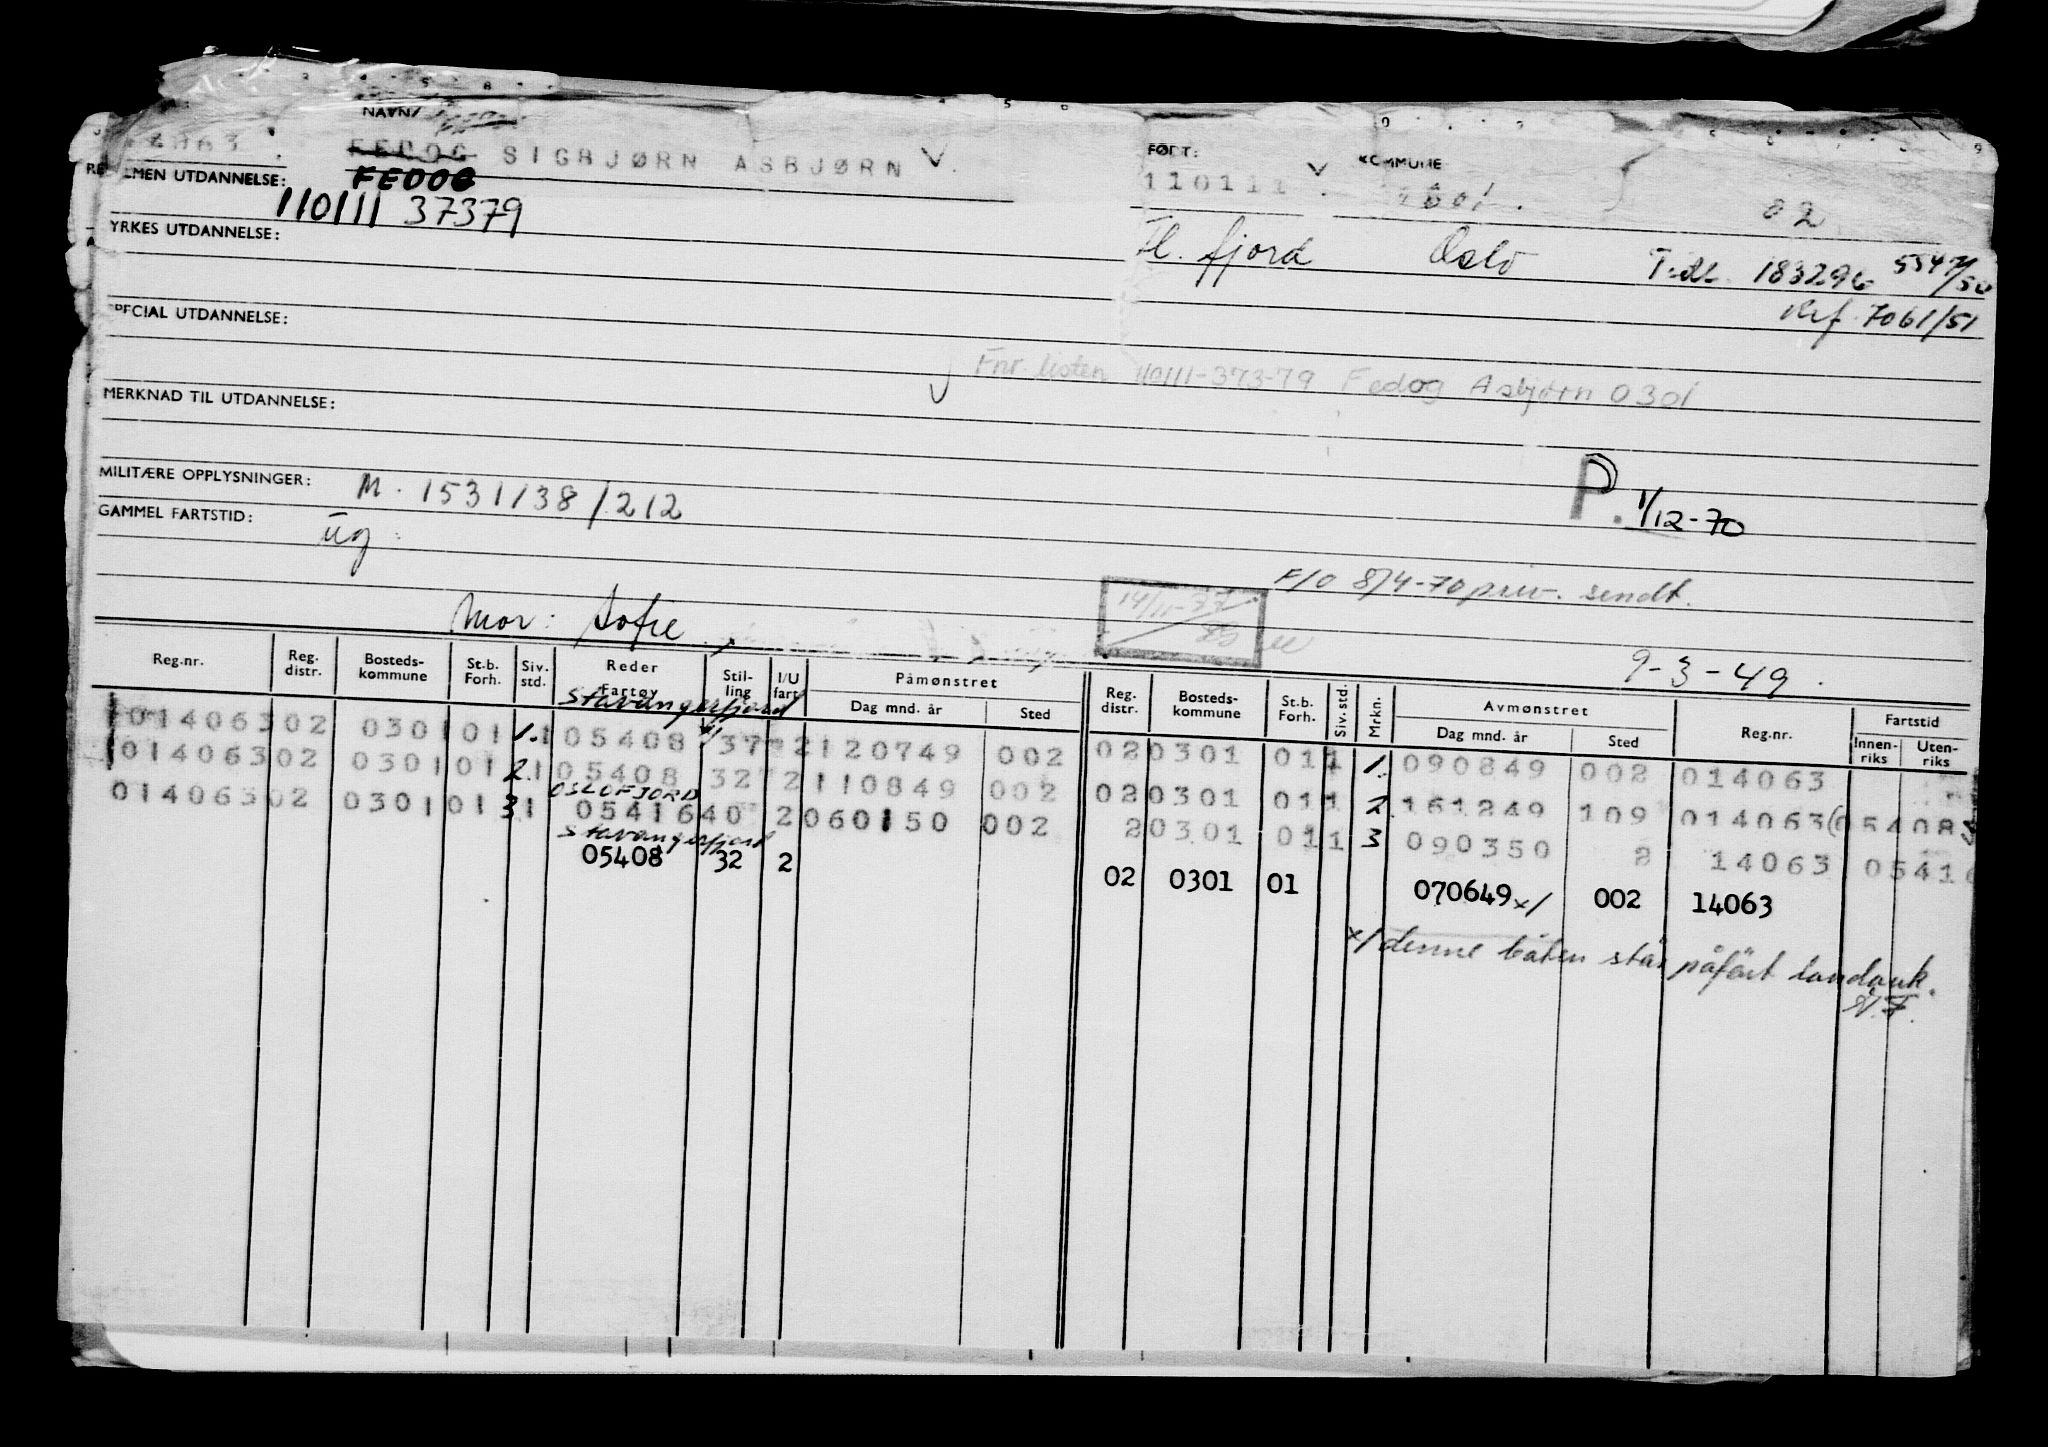 NAVN/
4063
FEDOG SIGBJØRN ASBJØRN
FEDOG
FØDT:
110111
KOMMUNE
02
ALMEN UTDANNELSE:
110111 37379
Fl. fjord
Oslo
T.dl. 183296 5547/50
YRKES UTDANNELSE:
Ref. 7061/51
SPECIAL UTDANNELSE:
Fnr. listen 110111-373-79 Fedog Asbjørn 0301
MERKNAD TIL UTDANNELSE:
MILITÆRE OPPLYSNINGER: M. 1531/38/212
P. 1/12-70
GAMMEL FARTSTID: ug.
F/O 8/4-70 priv. sendt.
14/11-77
Mor: Sofie
9-3-49.
Reg.nr. Reg. distr. Bosteds-kommune St.b. Forh. Siv. std. Reder Fartøy Stil-ling I/U fart Påmønstret Dag mnd. år Sted Reg. distr. Bosteds-kommune St.b. Forh. Siv. std. Mrkn. Avmønstret Dag mnd. år Sted Reg.nr. Fartstid Innen-riks Uten-riks
Stavangerfjord
014063 02 0301 01 1. 1 05408 37 2 120749 002 02 0301 01 1 1. 090849 002 014063
014063 02 0301 01 2. 1 05408 32 2 110849 002 02 0301 01 1 2 161249 109 014063 (05408
OSLOFJORD
014063 02 0301 01 3 1 05416 40 2 060150 002 2 0301 01 1 3 090350 2 14063 05416
Stavangerfjord
05408 32 2 02 0301 01 070649 x/ 002 14063
x/ denne båten står påført landauk.